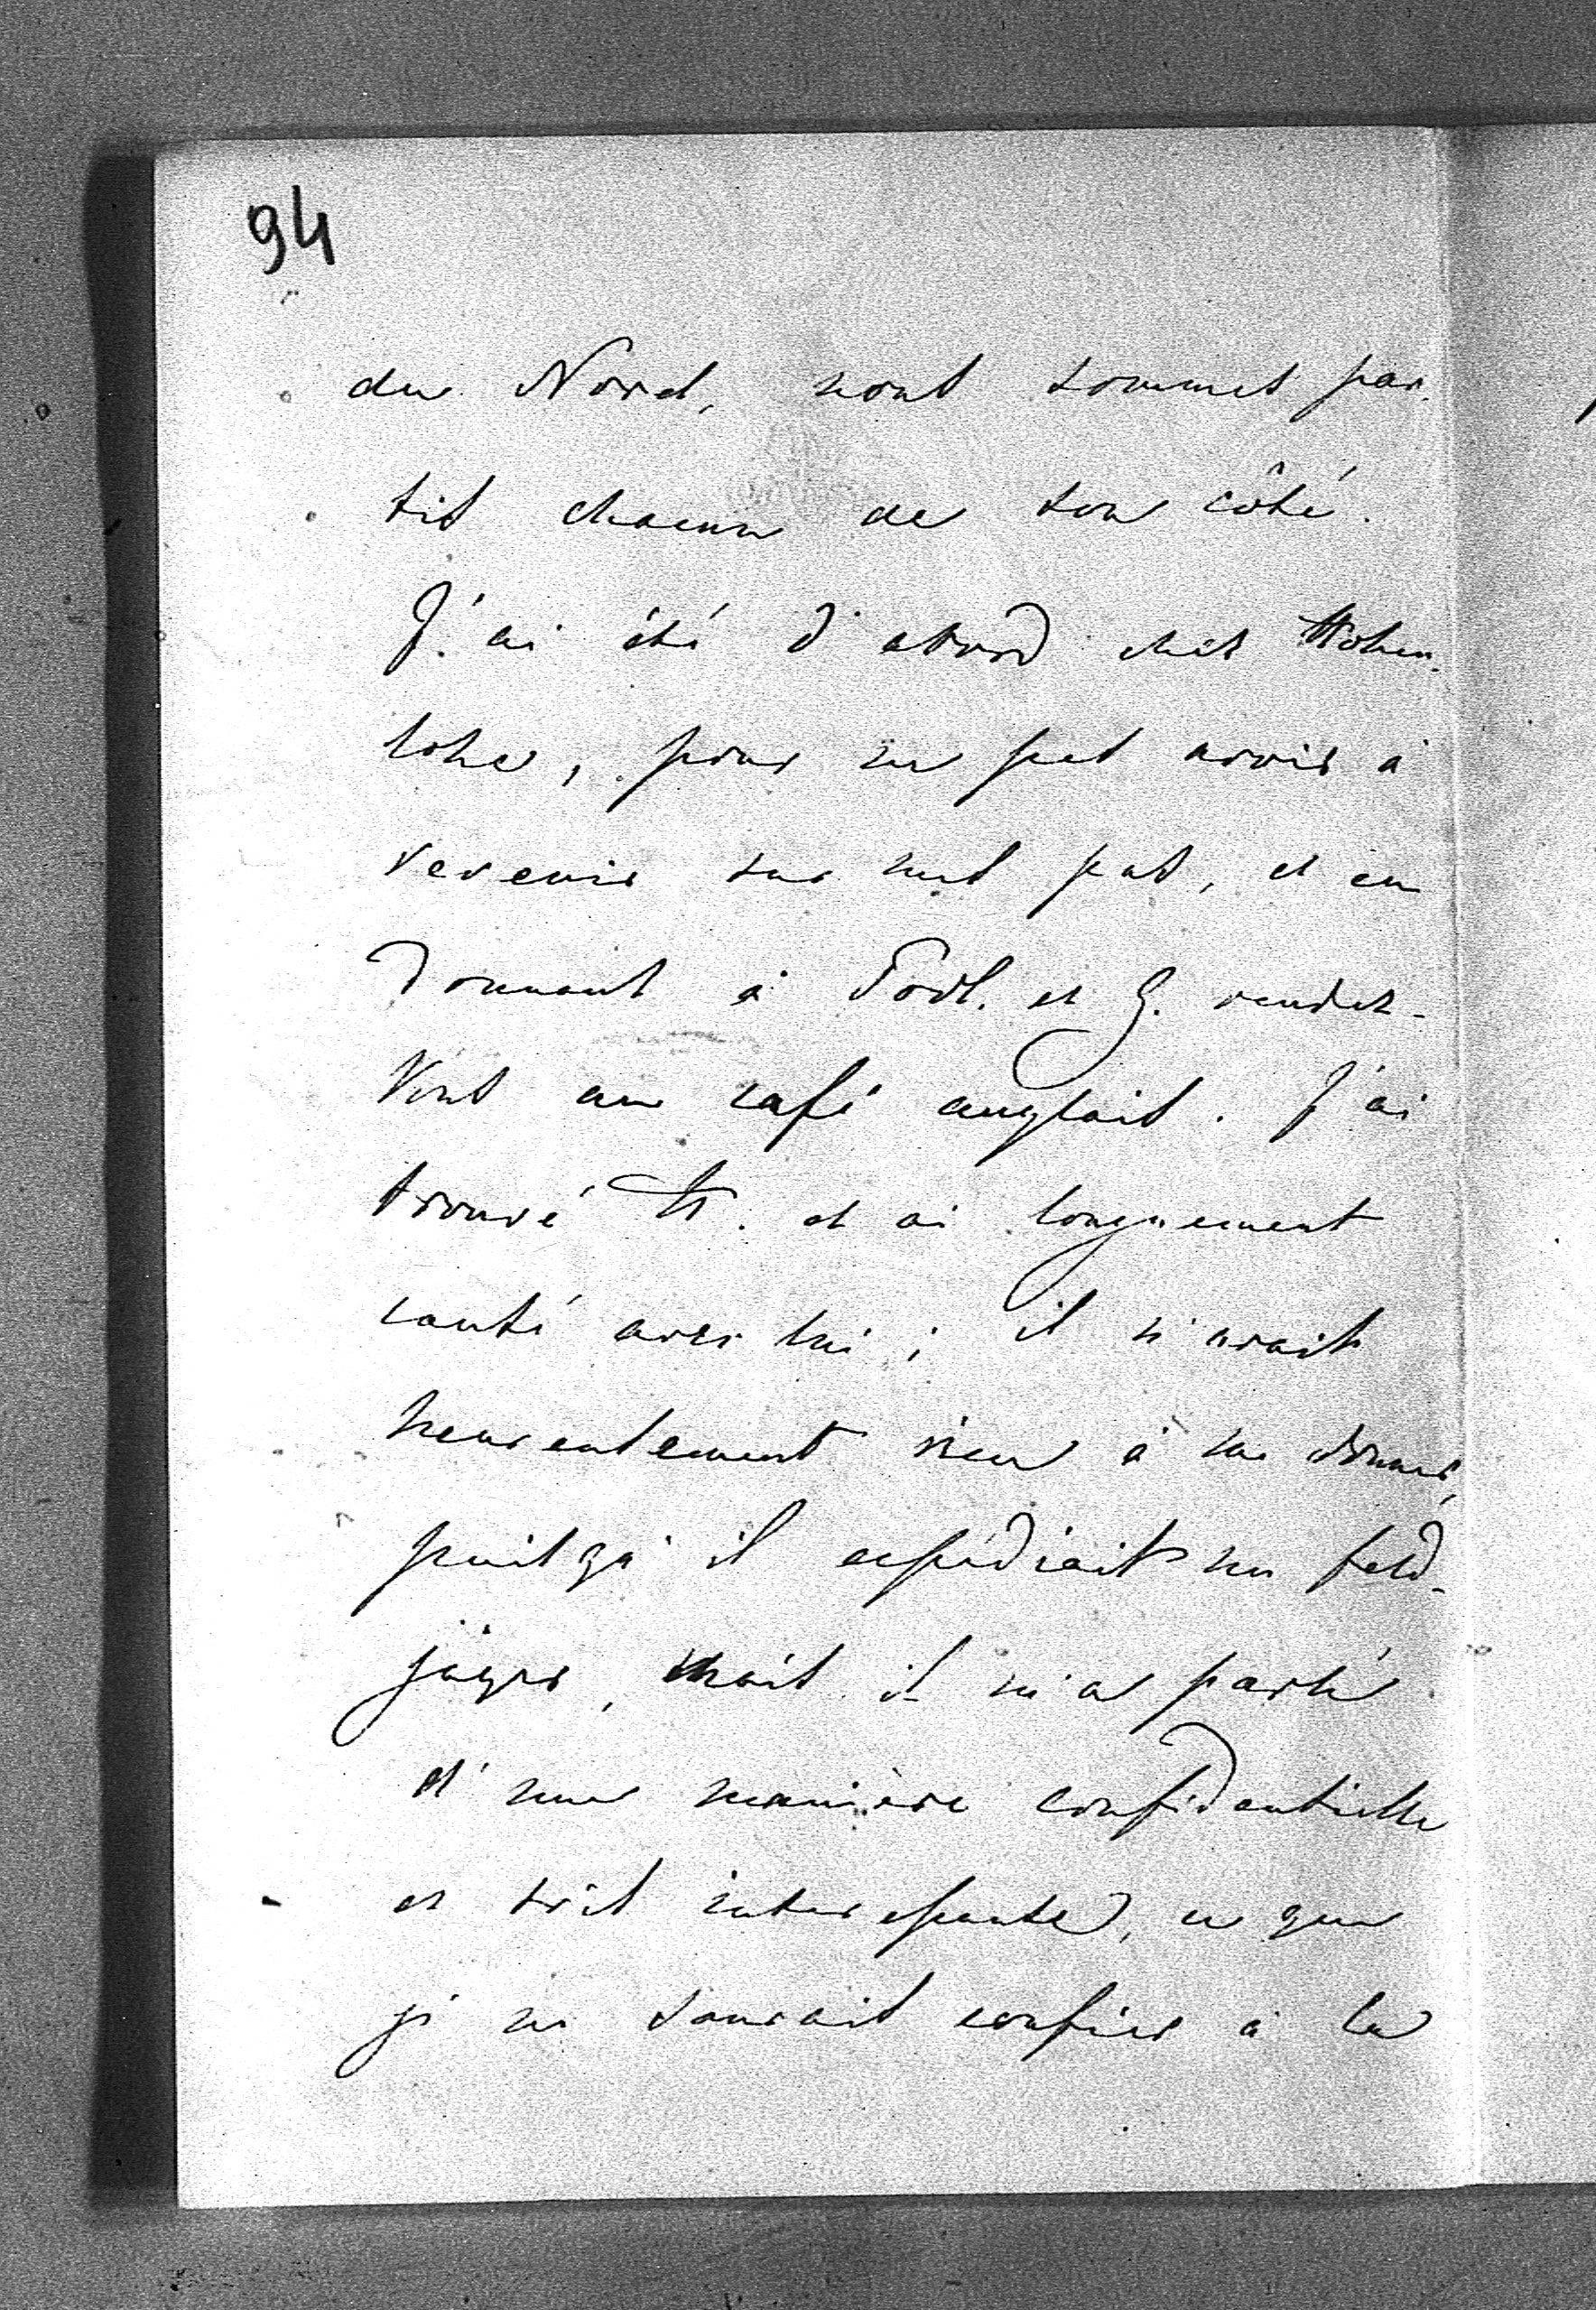 94
du Nord, nous sommes par-
tis chacun de son côté.
J'ai été d'abord chez Hohen-
lohe, pour ne pas avoir à
revenir sur mes pas, et en
donnant à Podl. et G. rendez-
vous au café anglais. J'ai
trouvé H. et ai longuement
causé avec lui; il n'avait
heureusement rien à me donner,
puisqu'il expédiait un feld-
jäger, mais il m'a parlé
d'une manière confidentielle
et très interessante, ce que
je ne saurais confier à la